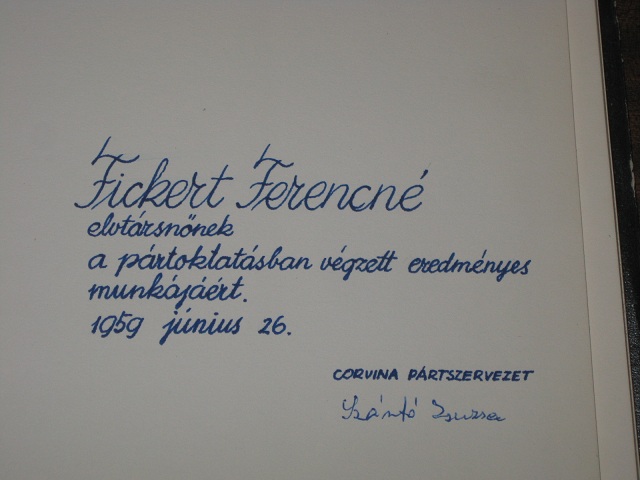 Fickert Ferencné
elvtársnőnek
a pártoktatásban végzett eredményes
munkájáért.
1959 június 26.
CORVINA PÁRTSZERVEZET
Szántó Zsuzsa